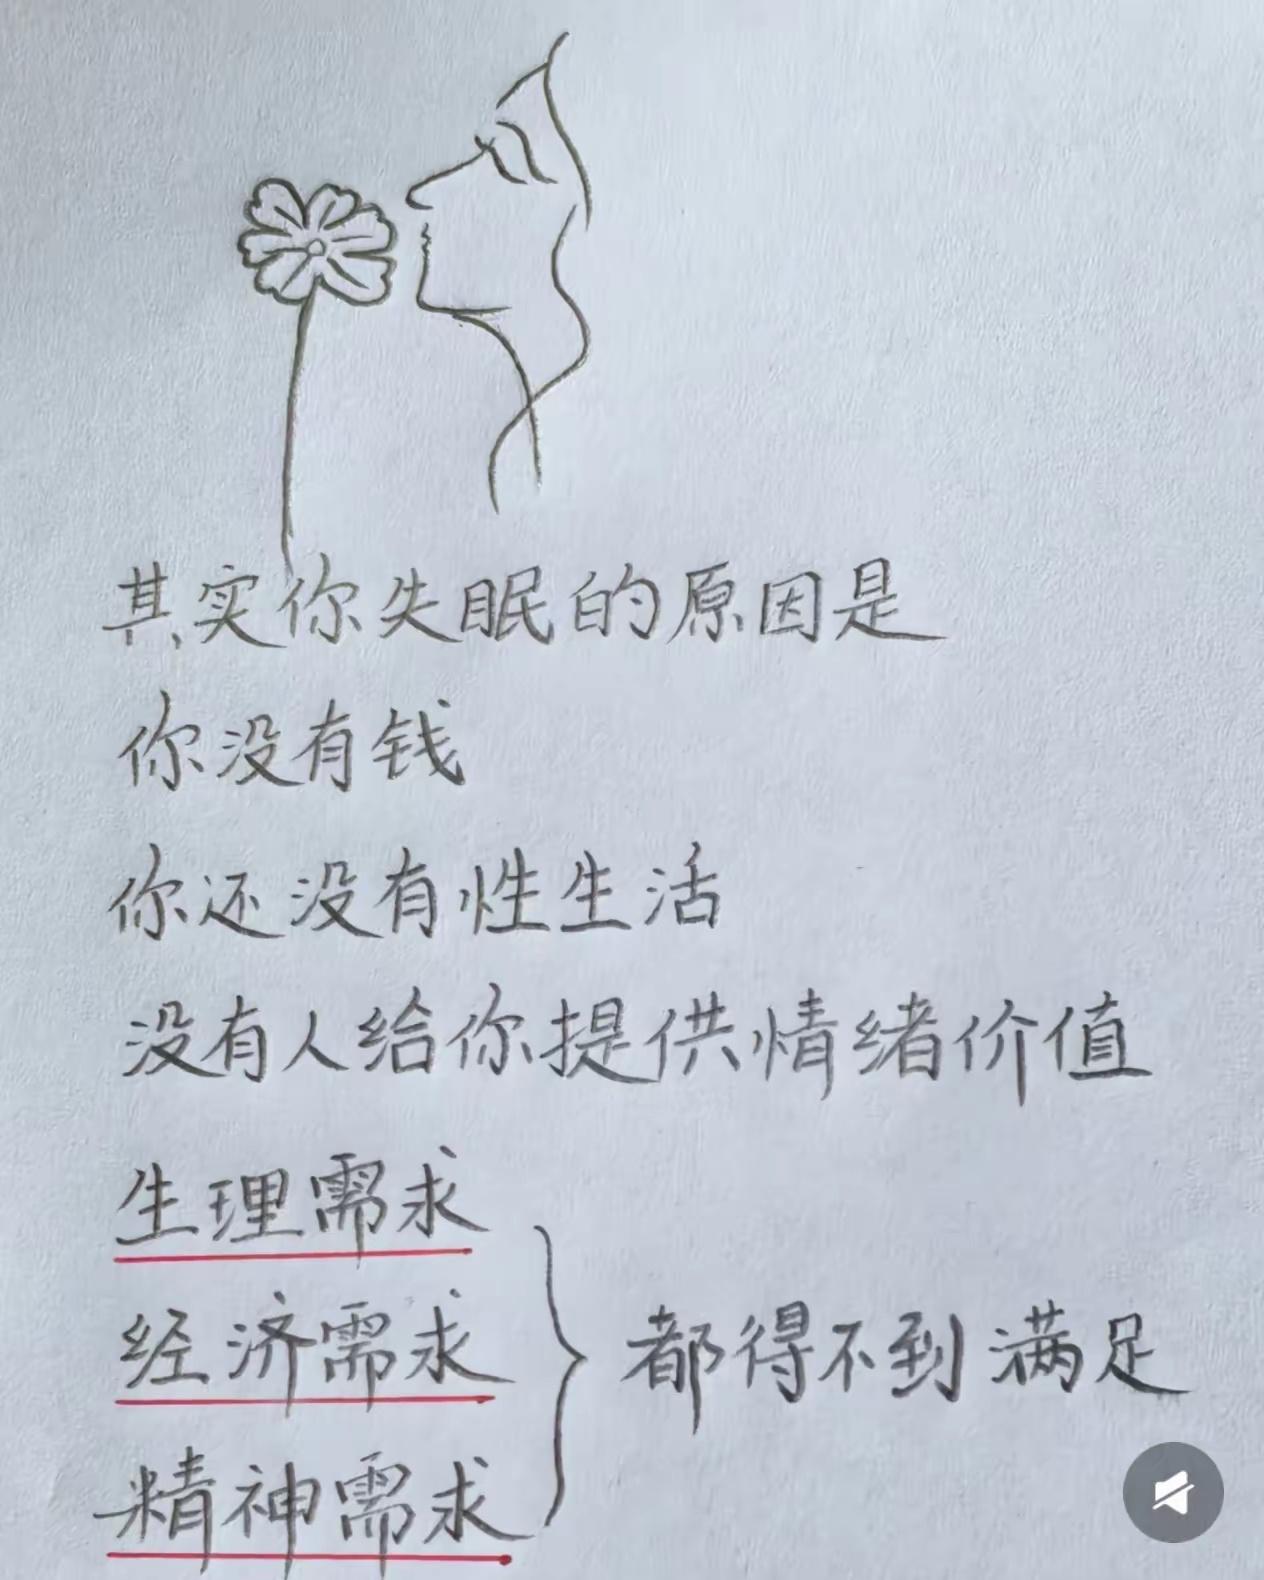 其实你失眠的原因是
你没有钱
你还没有性生活
没有人给你提供情绪价值
生理需求
经济需求
精神需求
都得不到满足